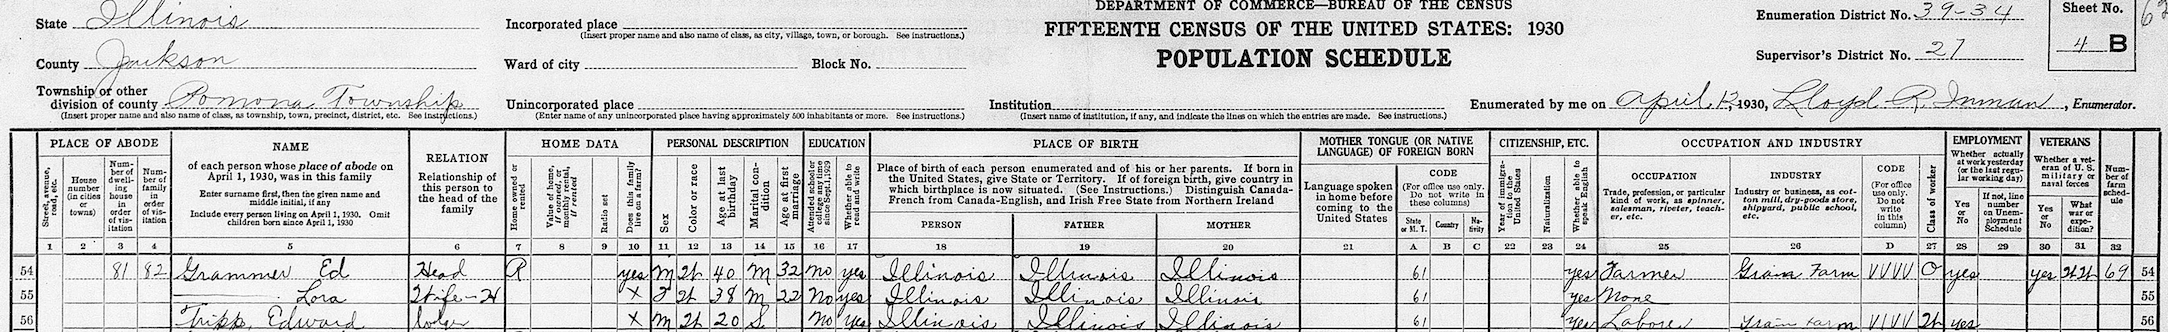 DEPARTMENT OF COMMERCE—BUREAU OF THE CENSUS
FIFTEENTH CENSUS OF THE UNITED STATES: 1930
POPULATION SCHEDULE
State Illinois
County Jackson
Township or other division of county Pomona Township
(Insert proper name and also name of class, as township, town, precinct, district, etc. See instructions.)
Incorporated place
(Insert proper name and also name of class, as city, village, town, or borough. See instructions.)
Ward of city
Block No.
Unincorporated place
(Enter name of any unincorporated place having approximately 500 inhabitants or more. See instructions.)
Institution
(Insert name of institution, if any, and indicate the lines on which the entries are made. See instructions.)
Enumeration District No. 39-34
Supervisor's District No. 27
Sheet No.
4 B
Enumerated by me on April 12, 1930, Lloyd R. Inman, Enumerator.
PLACE OF ABODE
Street, avenue, road, etc.
House number (in cities or towns)
Number of dwelling house in order of visitation
Number of family in order of visitation
NAME
of each person whose place of abode on April 1, 1930, was in this family
Enter surname first, then the given name and middle initial, if any
Include every person living on April 1, 1930. Omit children born since April 1, 1930
RELATION
Relationship of this person to the head of the family
HOME DATA
Home owned or rented
Value of home, if owned, or monthly rental, if rented
Radio set
Does this family live on a farm?
PERSONAL DESCRIPTION
Sex
Color or race
Age at last birthday
Marital condition
Age at first marriage
EDUCATION
Attended school or college any time since Sept. 1, 1929
Whether able to read and write
PLACE OF BIRTH
Place of birth of each person enumerated and of his or her parents. If born in the United States, give State or Territory. If of foreign birth, give country in which birthplace is now situated. (See Instructions.) Distinguish Canada-French from Canada-English, and Irish Free State from Northern Ireland
PERSON
FATHER
MOTHER
MOTHER TONGUE (OR NATIVE LANGUAGE) OF FOREIGN BORN
Language spoken in home before coming to the United States
CODE
(For office use only. Do not write in these columns)
State or M. T.
Country
Nativity
CITIZENSHIP, ETC.
Year of immigration to the United States
Naturalization
Whether able to speak English
OCCUPATION AND INDUSTRY
OCCUPATION
Trade, profession, or particular kind of work, as spinner, salesman, riveter, teacher, etc.
INDUSTRY
Industry or business, as cotton mill, dry-goods store, shipyard, public school, etc.
CODE
(For office use only. Do not write in this column)
Class of worker
EMPLOYMENT
Whether actually at work yesterday (or the last regular working day)
Yes or No
If not, line number on Unemployment Schedule
VETERANS
Whether a veteran of U. S. military or naval forces
Yes or No
What war or expedition?
Number of farm schedule
1 2 3 4 5 6 7 8 9 10 11 12 13 14 15 16 17 18 19 20 21 A B C 22 23 24 25 26 D 27 28 29 30 31 32
54 81 82 Grammer Ed Head R yes M W 40 M 32 no yes Illinois Illinois Illinois 61 yes Farmer Grain Farm VVVV O yes yes WW 69 54
55 — Lora Wife-H X F W 38 M 22 No yes Illinois Illinois Illinois 61 yes None 55
56 Tripp, Edward lodger X M W 20 S No yes Illinois Illinois Illinois 61 yes Laborer Grain Farm VIVV W yes 56